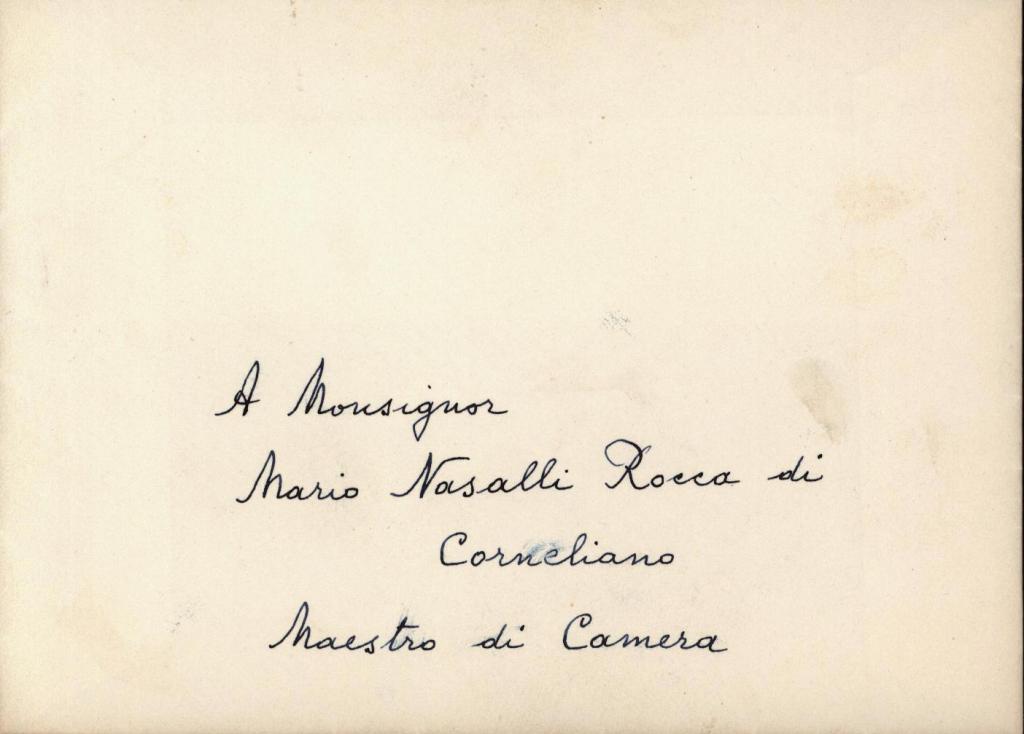 A Monsignor
Mario Nasalli Rocca di
Corneliano
Maestro di Camera